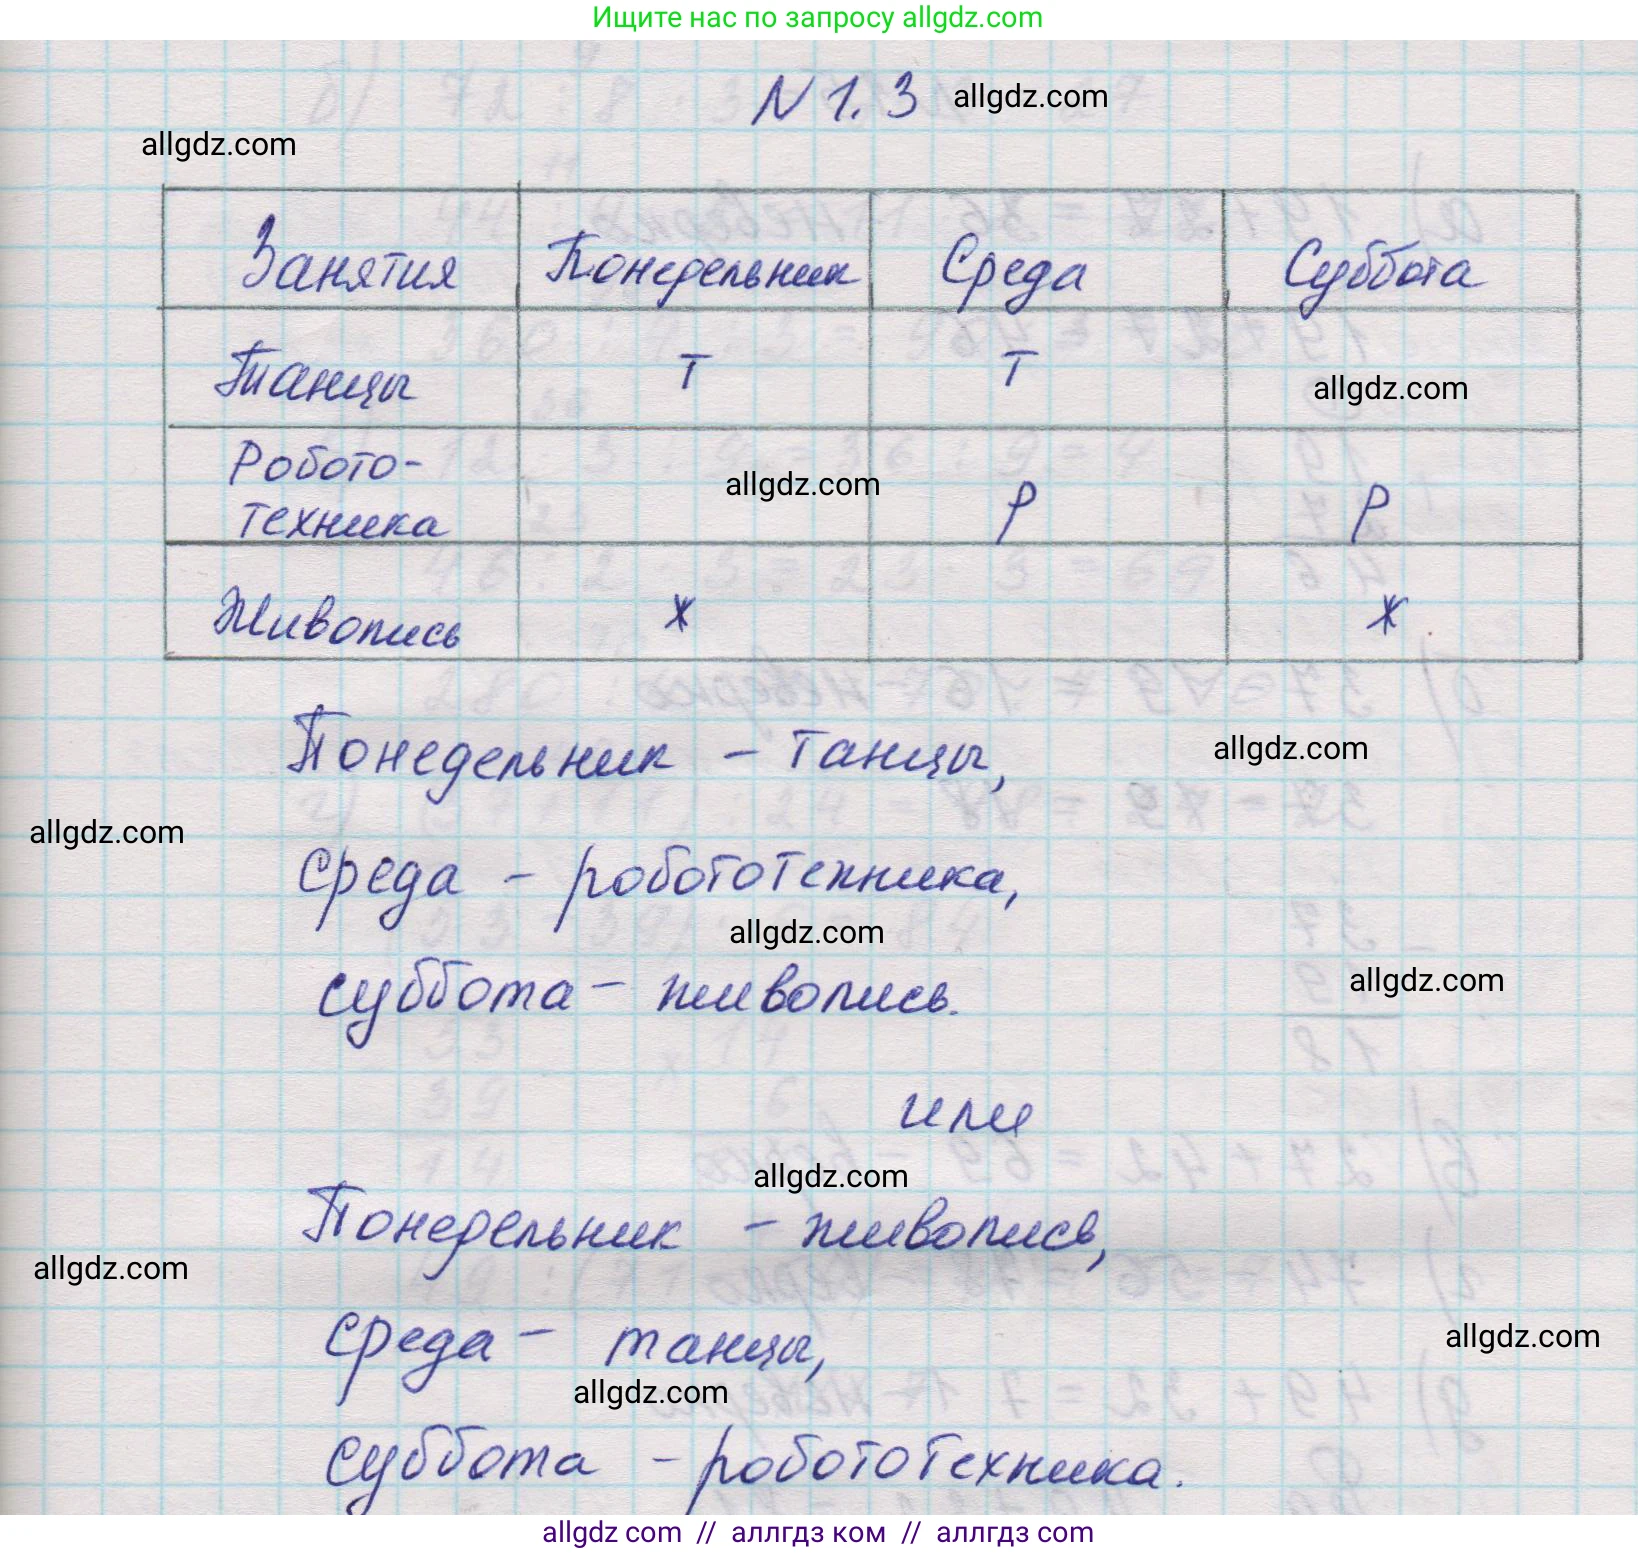 Ищите нас по запросу allgdz.com
N 1.3 allgdz.com
allgdz.com
Занятия Понедельник Среда Суббота
Танцы Т Т allgdz.com
Робото-
техника allgdz.com Р Р
Живопись Ж Ж
Понедельник - танцы, allgdz.com
allgdz.com
среда - робототехника,
allgdz.com
суббота - живопись. allgdz.com
или
allgdz.com
Понедельник - живопись,
allgdz.com
среда - танцы, allgdz.com
allgdz.com
суббота - робототехника.
allgdz com // аллгдз ком // аллгдз com